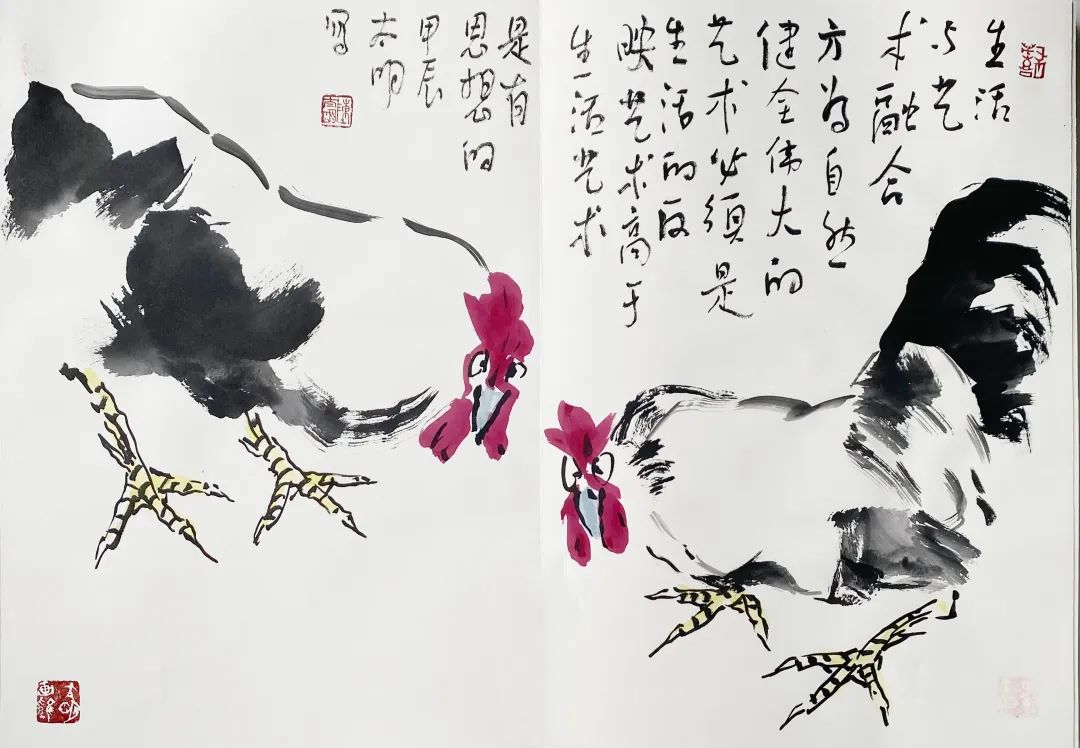 生活
与艺
术融合
方为自然
健全伟大的
艺术必须是
生活的反
映艺术高于
生活艺术
是有
思想的
甲辰
太明
写